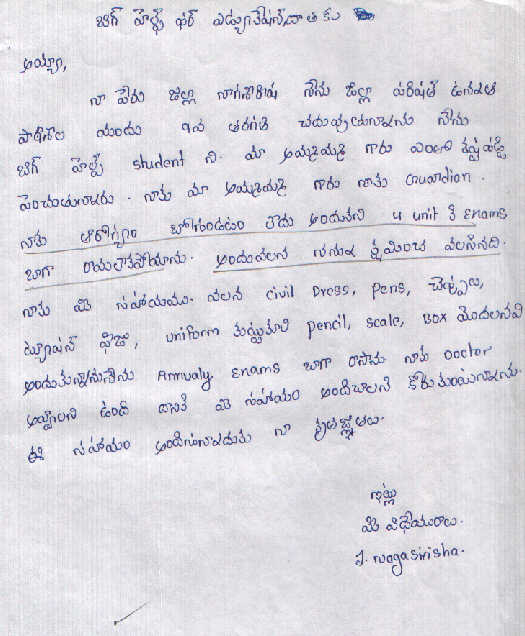 బిగ్ హెల్ప్ ఫర్ ఎడ్యుకేషన్ దాతకు
అయ్యా,
నా పేరు జిల్లా నాగశిరిష నేను జిల్లా పరిషత్ ఉన్నత
పాఠశాల నందు 9వ తరగతి చదువుతున్నాను నేను
బిగ్ హెల్ప్ student ని. మా అమ్మమ్మ గారు ఎంతో కష్టపడి
పెంచుతున్నారు. నాకు మా అమ్మమ్మ గారు నాకు Guardian.
నాకు ఆరోగ్యం బాగుండటం లేదు అందుకని 4 unit కి Exams
బాగా రాయలేకపోయాను. అందువలన నన్ను క్షమించ వలసినది.
నాకు మీ సహాయము. వలన civil Dress, pens, చెప్పులు,
ట్యూషన్ ఫీజు, uniform కుట్టుకూలి pencil, scale, Box మొదలనవి
అందుకున్నాను నేను Annualy. Exams బాగా రాసాను నాకు Doctor
అవ్వాలని ఉంది దానికి మీ సహాయం అందివ్వాలని కోరుకుంటున్నాను.
ఈ సహాయం అందిస్తున్నందుకు నా కృతజ్ఞతలు.
ఇట్లు
మీ విధేయురాలు.
J. nagasirisha.